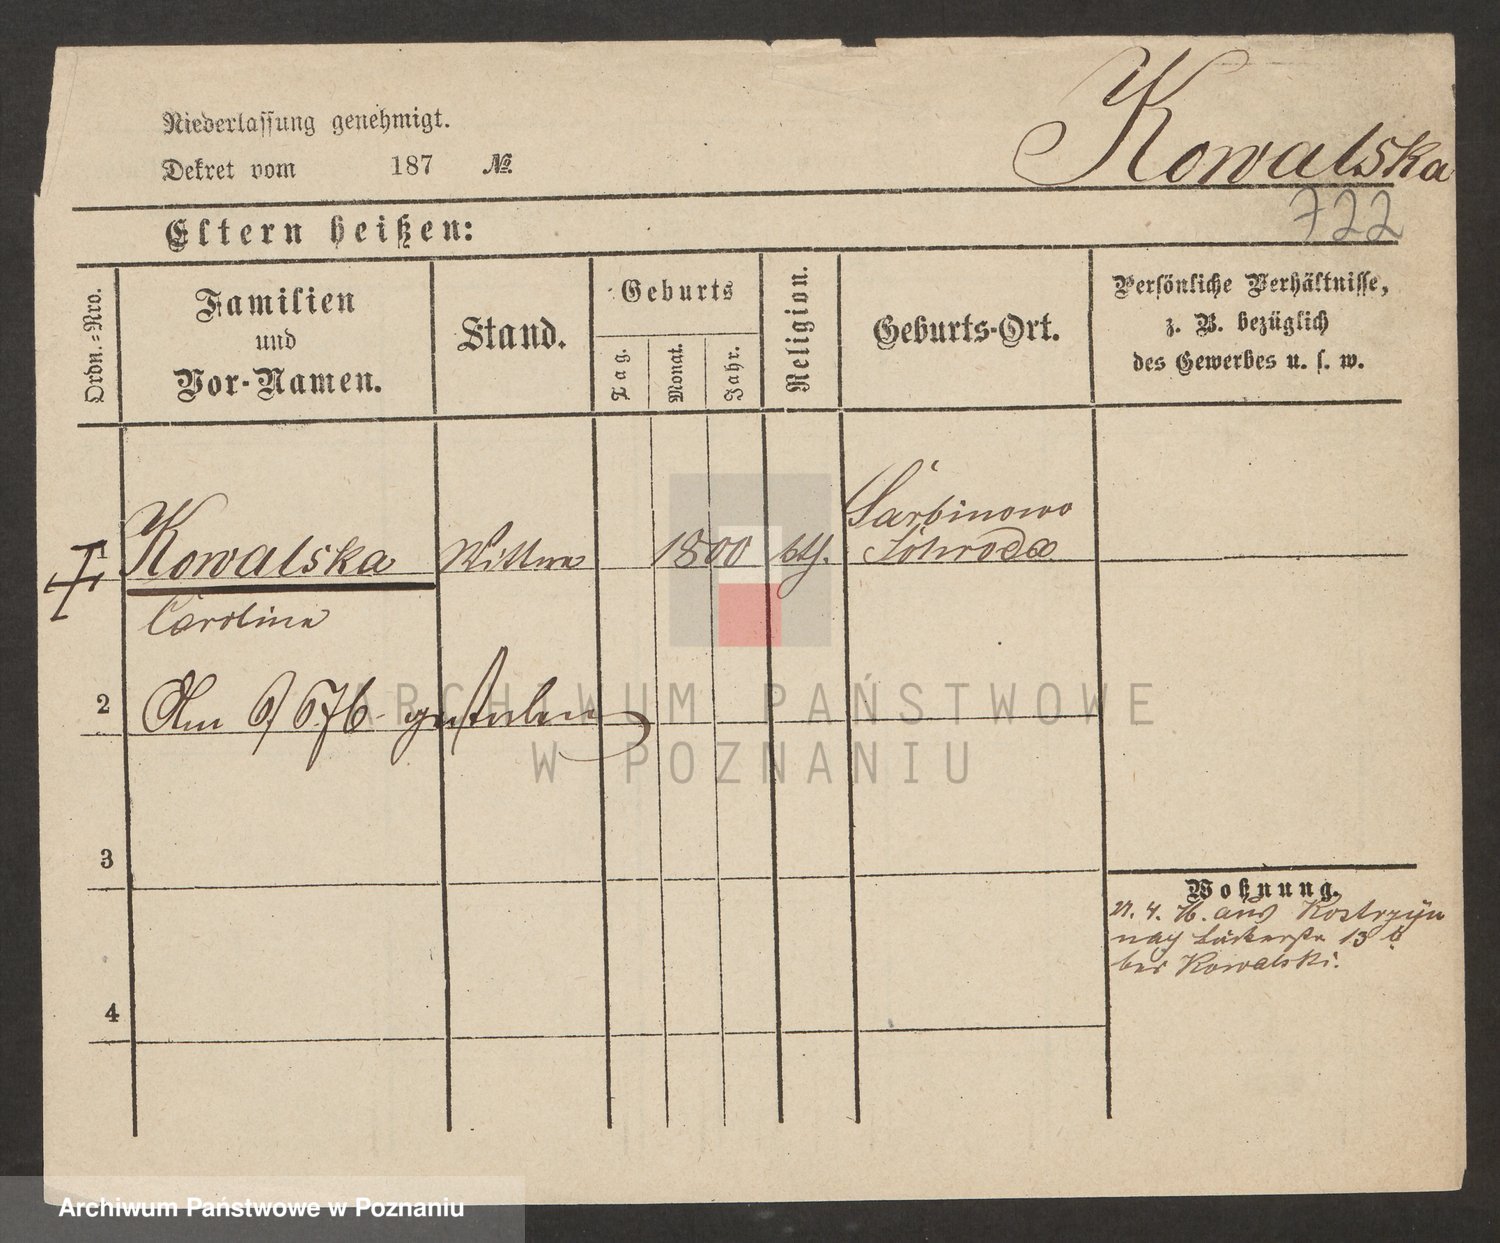 Kowalska
Niederlassung genehmigt.
Dekret vom 187 №.
722
Eltern heißen:
Ordn.-Nro.
Familien
und
Vor-Namen.
Stand.
Geburts
Tag.
Monat.
Jahr.
Religion.
Geburts-Ort.
Persönliche Verhältnisse,
z. B. bezüglich
des Gewerbes u. s. w.
Sarbinowo
1 Kowalska Wittwe 1800 kth. Schroda
Caroline
2 Am 6/6 76 gestorben
3
Wohnung.
4. 76. aus Kostrzyn
nach Bäckerstr 13 b
bei Kowalski.
4
ARCHIWUM PAŃSTWOWE
W POZNANIU
Archiwum Państwowe w Poznaniu